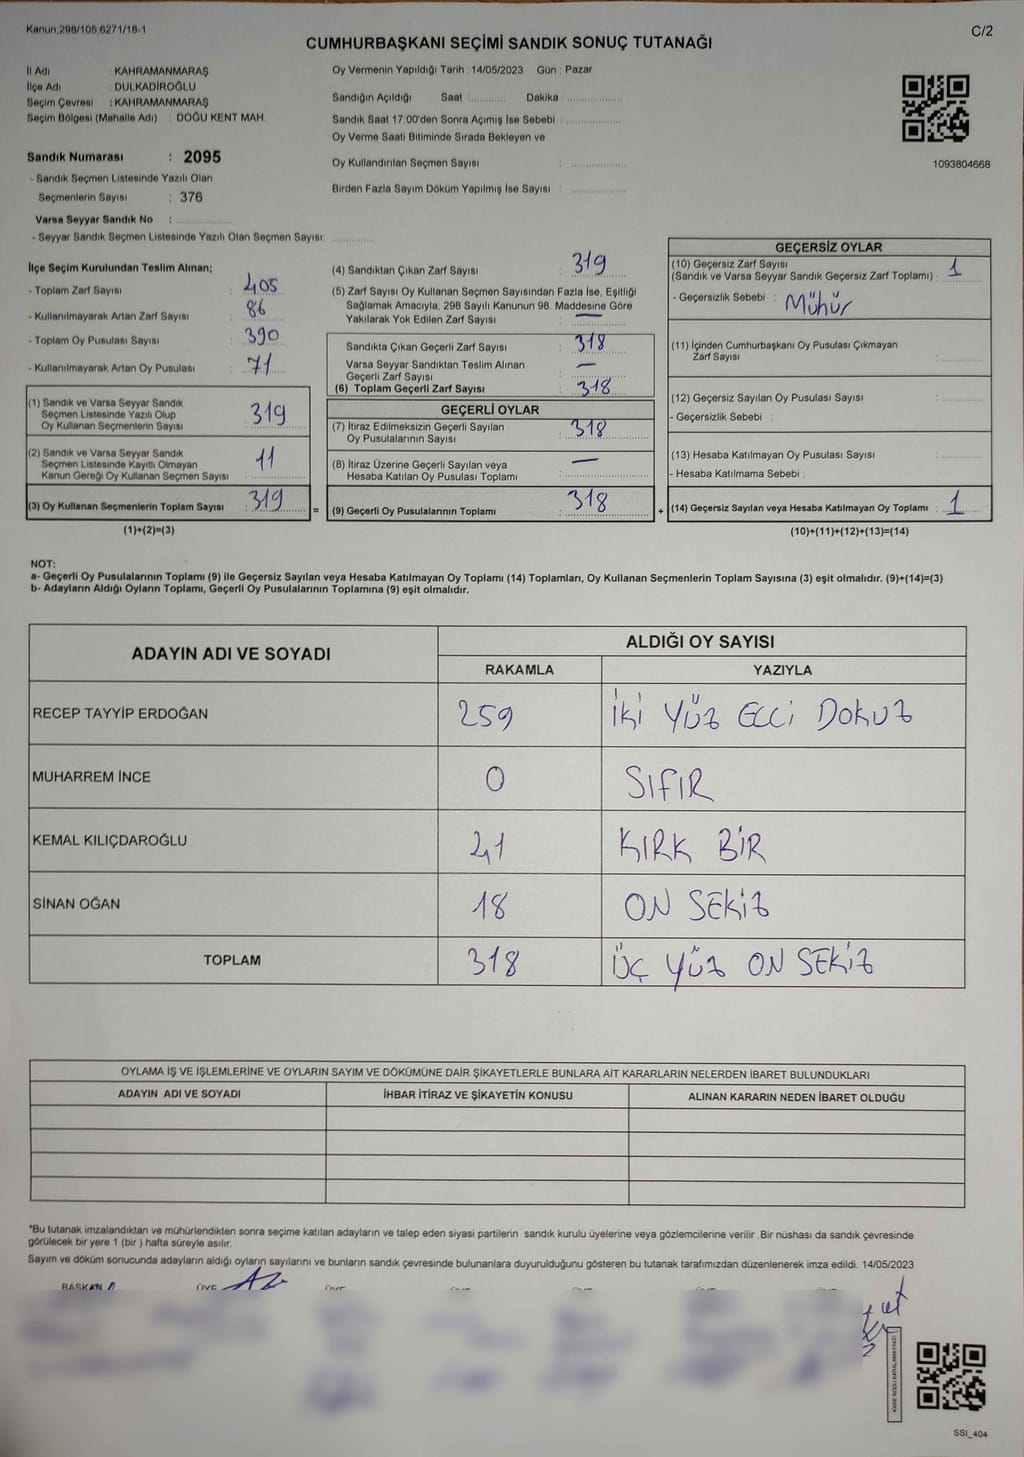 Kanun,298/105,6271/18-1
C/2
CUMHURBAŞKANI SEÇİMİ SANDIK SONUÇ TUTANAĞI
İl Adı : KAHRAMANMARAŞ
İlçe Adı : DULKADİROĞLU
Seçim Çevresi : KAHRAMANMARAŞ
Seçim Bölgesi (Mahalle Adı) : DOĞU KENT MAH.
Sandık Numarası : 2095
- Sandık Seçmen Listesinde Yazılı Olan
Seçmenlerin Sayısı : 376
Varsa Seyyar Sandık No :
- Seyyar Sandık Seçmen Listesinde Yazılı Olan Seçmen Sayısı:
Oy Vermenin Yapıldığı Tarih : 14/05/2023 Gün : Pazar
Sandığın Açıldığı Saat : Dakika :
Sandık Saat 17:00'den Sonra Açımış İse Sebebi :
Oy Verme Saati Bitiminde Sırada Bekleyen ve
Oy Kullandırılan Seçmen Sayısı :
Birden Fazla Sayım Döküm Yapılmış İse Sayısı :
1093804668
İlçe Seçim Kurulundan Teslim Alınan;
- Toplam Zarf Sayısı : 405
- Kullanılmayarak Artan Zarf Sayısı : 86
- Toplam Oy Pusulası Sayısı : 390
- Kullanılmayarak Artan Oy Pusulası : 71
(1) Sandık ve Varsa Seyyar Sandık
Seçmen Listesinde Yazılı Olup
Oy Kullanan Seçmenlerin Sayısı : 319
(2) Sandık ve Varsa Seyyar Sandık
Seçmen Listesinde Kayıtlı Olmayan
Kanun Gereği Oy Kullanan Seçmen Sayısı : 11
(3) Oy Kullanan Seçmenlerin Toplam Sayısı : 319
(1)+(2)=(3)
(4) Sandıktan Çıkan Zarf Sayısı : 319
(5) Zarf Sayısı Oy Kullanan Seçmen Sayısından Fazla İse, Eşitliği
Sağlamak Amacıyla, 298 Sayılı Kanunun 98. Maddesine Göre
Yakılarak Yok Edilen Zarf Sayısı : —
Sandıkta Çıkan Geçerli Zarf Sayısı : 318
Varsa Seyyar Sandıktan Teslim Alınan
Geçerli Zarf Sayısı : —
(6) Toplam Geçerli Zarf Sayısı : 318
GEÇERLİ OYLAR
(7) İtiraz Edilmeksizin Geçerli Sayılan
Oy Pusulalarının Sayısı : 318
(8) İtiraz Üzerine Geçerli Sayılan veya
Hesaba Katılan Oy Pusulası Toplamı : —
= (9) Geçerli Oy Pusulalarının Toplamı : 318
GEÇERSİZ OYLAR
(10) Geçersiz Zarf Sayısı
(Sandık ve Varsa Seyyar Sandık Geçersiz Zarf Toplamı) : 1
- Geçersizlik Sebebi : Mühür
(11) İçinden Cumhurbaşkanı Oy Pusulası Çıkmayan
Zarf Sayısı :
(12) Geçersiz Sayılan Oy Pusulası Sayısı :
- Geçersizlik Sebebi :
(13) Hesaba Katılmayan Oy Pusulası Sayısı :
- Hesaba Katılmama Sebebi :
+ (14) Geçersiz Sayılan veya Hesaba Katılmayan Oy Toplamı : 1
(10)+(11)+(12)+(13)=(14)
NOT:
a- Geçerli Oy Pusulalarının Toplamı (9) ile Geçersiz Sayılan veya Hesaba Katılmayan Oy Toplamı (14) Toplamları, Oy Kullanan Seçmenlerin Toplam Sayısına (3) eşit olmalıdır. (9)+(14)=(3)
b- Adayların Aldığı Oyların Toplamı, Geçerli Oy Pusulalarının Toplamına (9) eşit olmalıdır.
ADAYIN ADI VE SOYADI ALDIĞI OY SAYISI
RAKAMLA YAZIYLA
RECEP TAYYİP ERDOĞAN 259 İKİ YÜZ ELLİ DOKUZ
MUHARREM İNCE 0 SIFIR
KEMAL KILIÇDAROĞLU 41 KIRK BİR
SİNAN OĞAN 18 ON SEKİZ
TOPLAM 318 ÜÇ YÜZ ON SEKİZ
OYLAMA İŞ VE İŞLEMLERİNE VE OYLARIN SAYIM VE DÖKÜMÜNE DAİR ŞİKAYETLERLE BUNLARA AİT KARARLARIN NELERDEN İBARET BULUNDUKLARI
ADAYIN ADI VE SOYADI İHBAR İTİRAZ VE ŞİKAYETİN KONUSU ALINAN KARARIN NEDEN İBARET OLDUĞU
*Bu tutanak imzalandıktan ve mühürlendikten sonra seçime katılan adayların ve talep eden siyasi partilerin sandık kurulu üyelerine veya gözlemcilerine verilir .Bir nüshası da sandık çevresinde
görülecek bir yere 1 (bir ) hafta süreyle asılır.
Sayım ve döküm sonucunda adayların aldığı oyların sayılarını ve bunların sandık çevresinde bulunanlara duyurulduğunu gösteren bu tutanak tarafımızdan düzenlenerek imza edildi. 14/05/2023
BAŞKAN ÜYE
KARE KODU KARALAMAYINIZ!
SSI_404